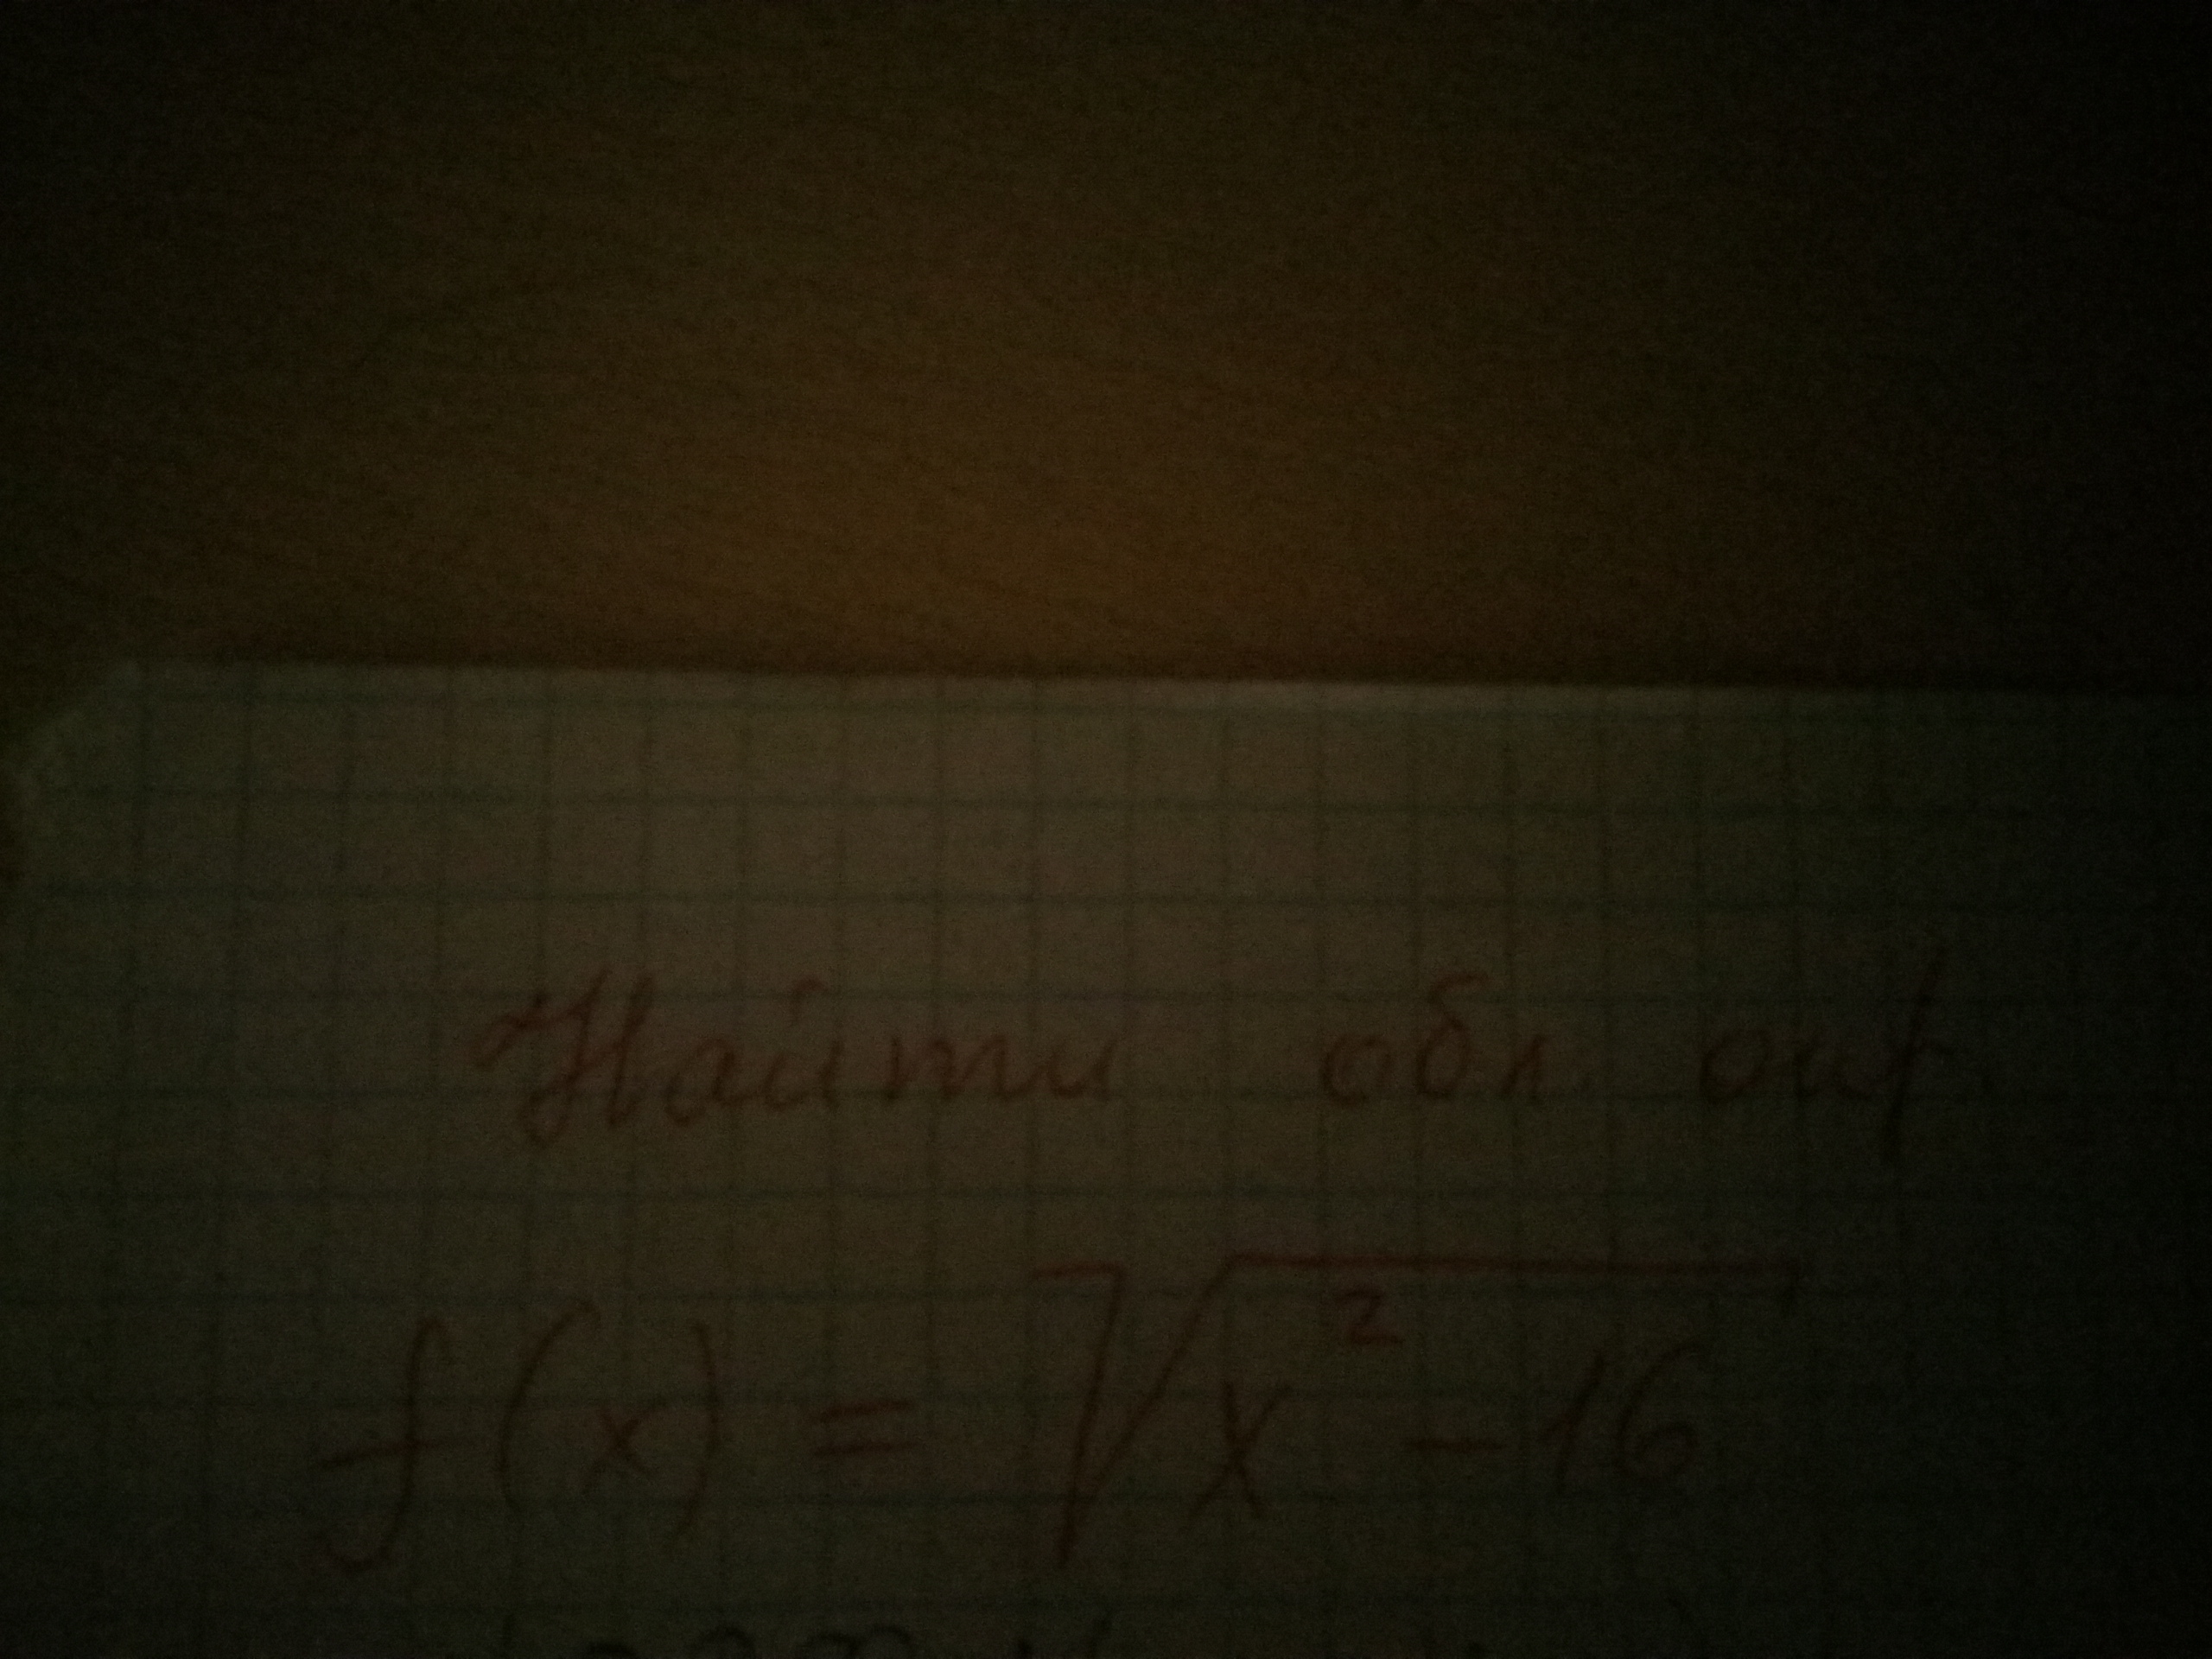 Найти обл опр.
f(x) = √x² - 16